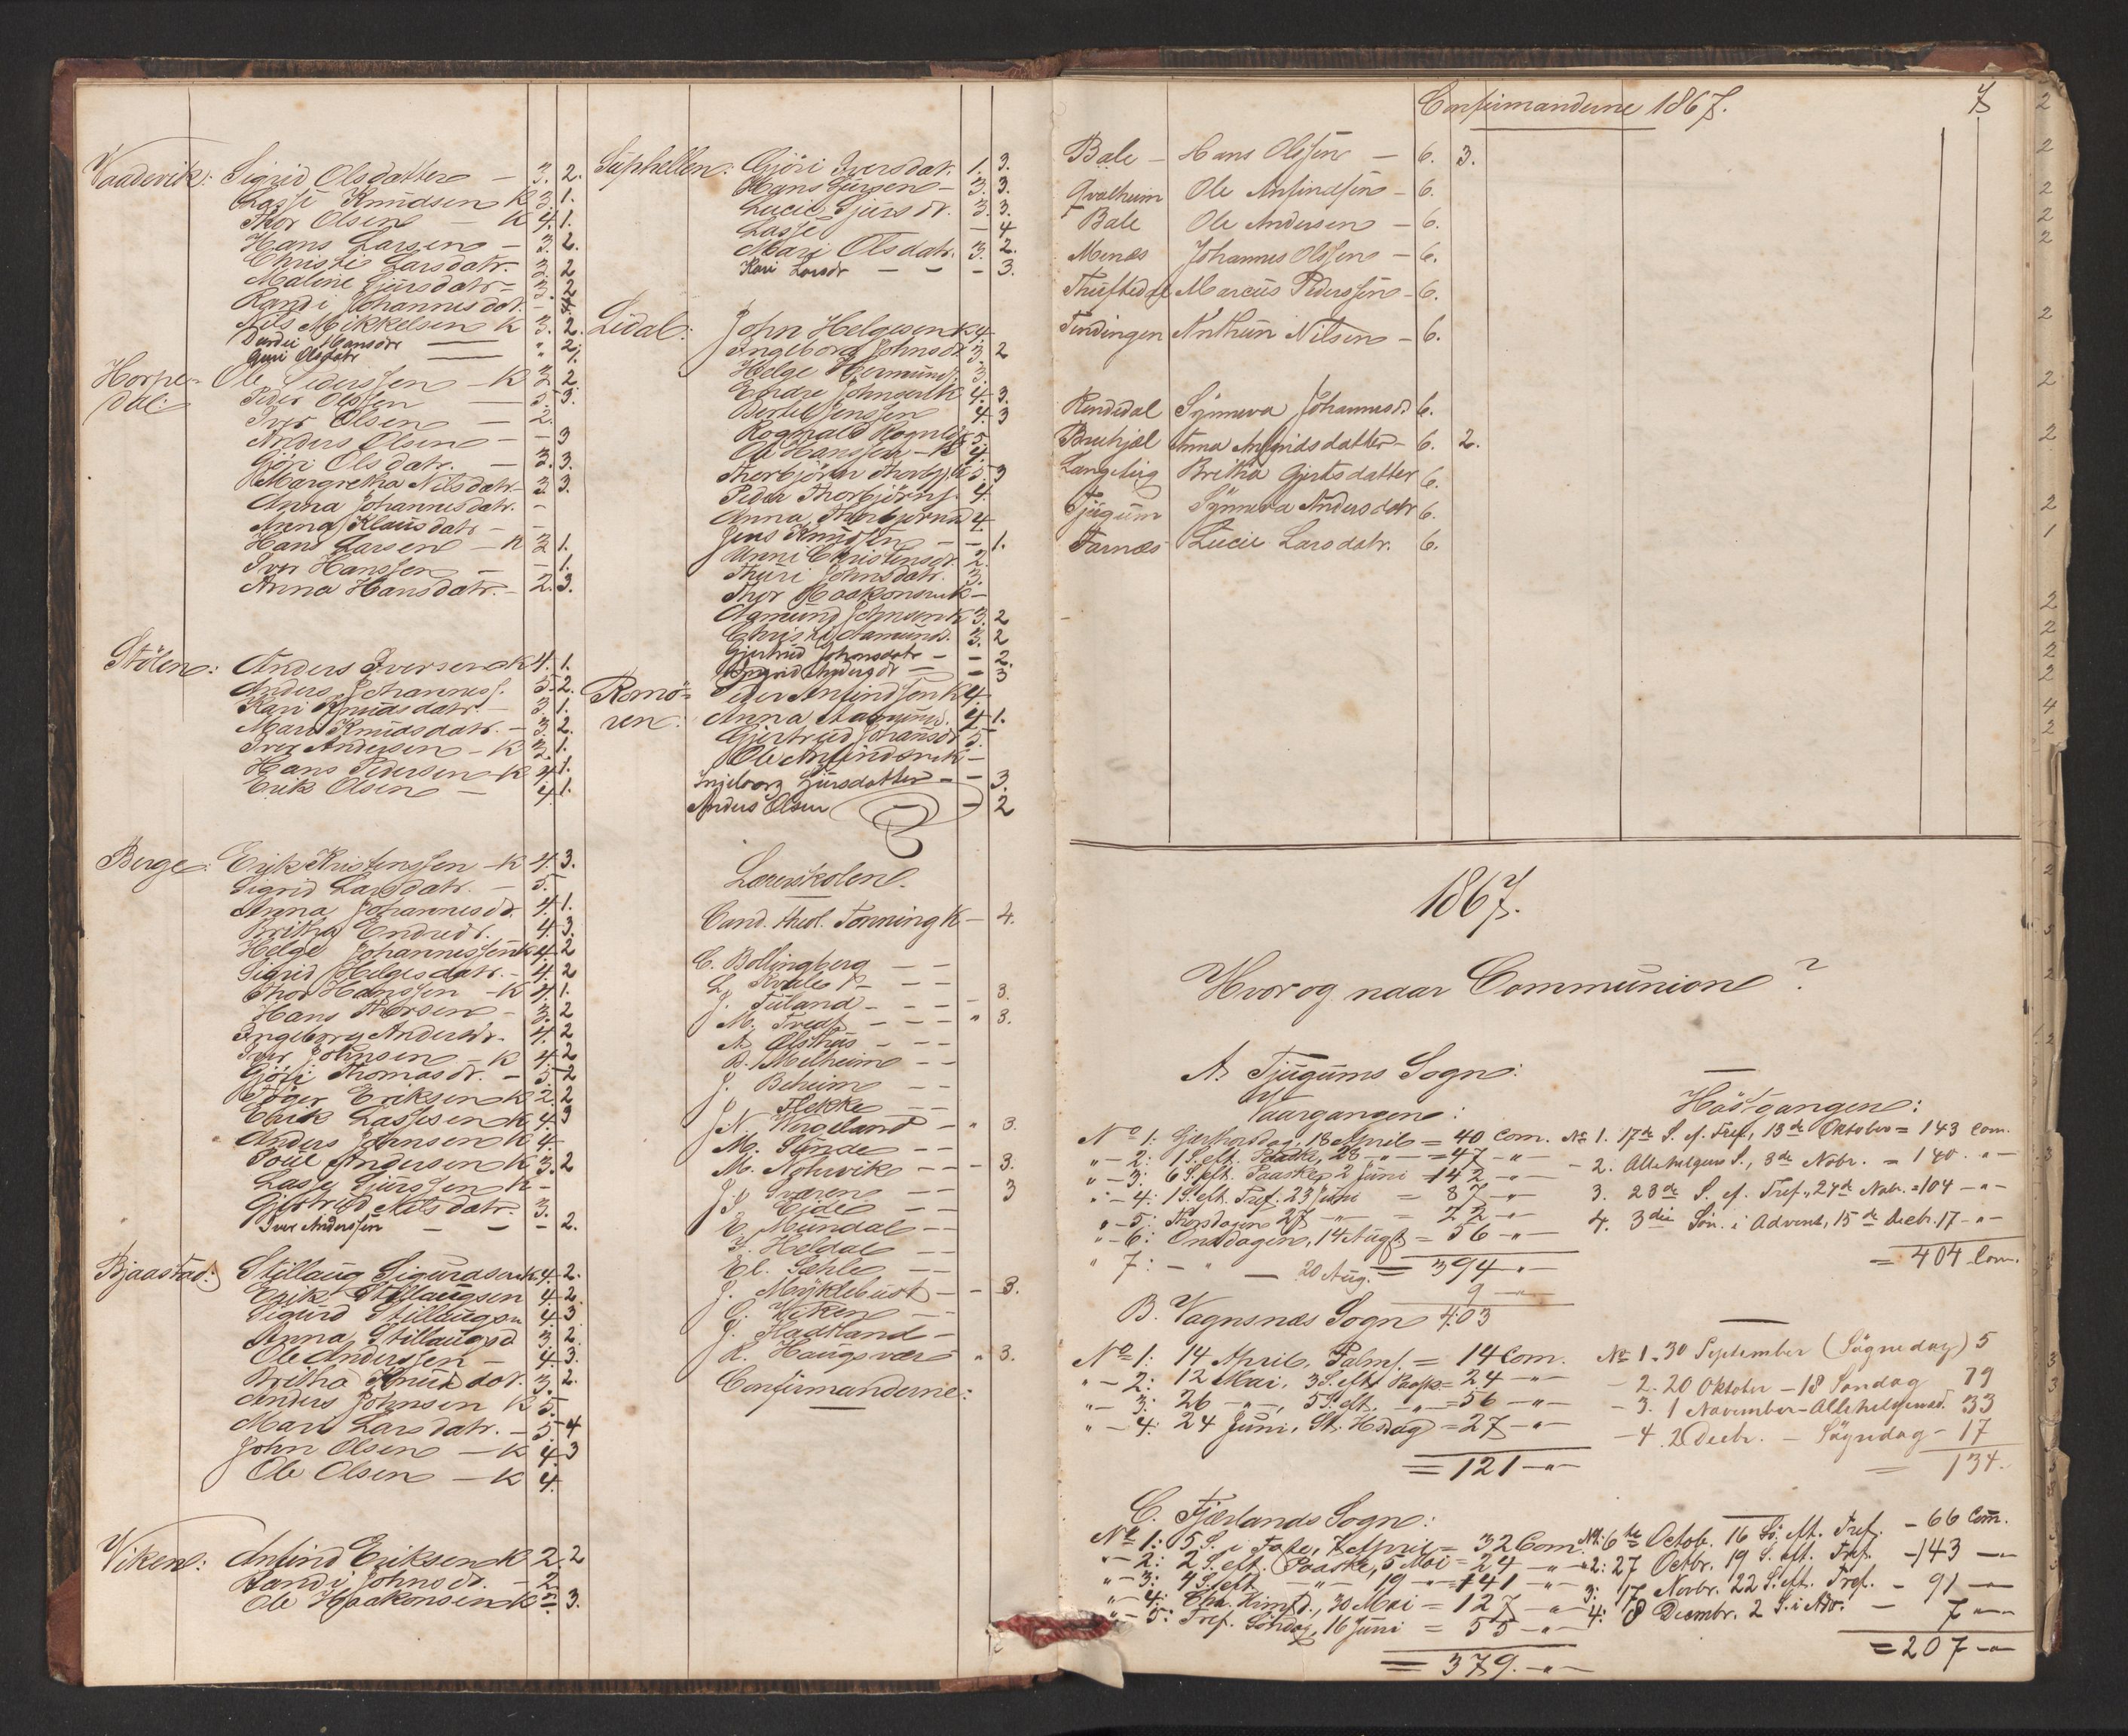 Vaadevik: Sigrid Olsdatter — 3. 2.
Lasse Knudsen K 3. 1.
Thor Olsen — K 4. 1.
Hans Larsen — 3. 2.
Christi Larsdatr. 3. 2
Maline Sjursdatr — 3. 2
Randi Johannesdat. —
Nils Mikkelsen K 3. 2.
Hansdr — " 2.
Guri Olsdatr — " 1.
Horpe-dal: Ole Pederssen — K 3. 2.
Peder Olssen — 3.
Iver Olsen — 2.
Anders Olsen — — 3
Gjöri Olsdatr. — 3. 3.
Margretha Nilsdatr. 3 3.
Anna Johannesdatr. —
Anna Klausdatr — —
Hans Larsen — K 3. 1.
Iver Hanssen — — 1.
Anna Hansdatr. — 2. 3.
Stölen: Anders Iversen K 4. 1.
Anders Johanness. 5. 2.
Kari Knudsdatr. — 3. 1.
Mari Knudsdatr. — 3. 2.
Iver Andersen — K 3. 1.
Hans Pedersen — K 4. 1.
Erik Olsen — 4. 1.
Berge: Erik Kristenssen — K 4. 3.
Sigrid Larsdatr. — 5.
Anna Johannesdr. 4. 1.
Britha Endredr. 4. 3.
Helge Johannessen K 4. 2
Sigrid Helgesdatr. — 4. 2
Thor Hanssen — K 4. 1.
Hans Thorsen — 3. 2
Ingeborg Andersdr. 4. 2
Iver Johnsen — K 4. 2
Gjöri Thomasdr. — 5. 2
Eriksen K 2. 2
Erik Lassesen K 4. 3
Anders Johnsen K 4.
Andersen K 3. 2
Lasse Sjurssen K —
Gjertrud Nilsdatr. 3.
Iver Anderssen — — — 2.
Bjaastad: Stillaug Sigurdsen K. 4. 2.
Erik Stillaugsen 4. 2
Sigurd Stillaugsn 4. 3
Anna Stillaugsd 3. 2.
Ole Anderssen — 4. 3.
Britha Knudsdat. 3. 2.
Anders Johnsen K 5.
Mari Larsdatr. — 5. 4
John Olsen — K 4. 3
Ole Olsen — K 4.
Viken: Anfind Eriksen K 2. 2
Randi Johnsdr. — 2.
Ole Haakonsen K 2. 3.
Suphellen: Gjöri Iversdat. 1. 3.
Hans Sjursen — 3. 3.
Lucie Sjursdr. 3. 3.
Lasse — 4
Mari Olsdatr. 3. 2.
Kari Larsdr — — — 3.
Lidal: John Helgesen K 4.
Ingeborg Johnsdr 3. 2
Helge Hermunds. 3.
Endre Johnsen K 4. 3.
4. 3
Rognald Rognlds 5.
Ole Hanssen — K 4.
Thorbjörn Thorbj. K 5. 3
Peder Thorbjörns. 4.
Anna Thorbjörnsd 4.
Jens Knudsen — — 1.
Anni Christensdr. 2.
Thuri Johnsdatr. 3.
Thor Haakonsen K —
Aamund Johnsen K 3. 2
Christi Aamunds. 3. 2
Gjertrud Johnsdatr — — 2.
Ingrid Andersdr — — 3
Romö-ren: Peder Anfindssen K 4.
Anna Aamunds. 4. 1.
Gjertrud Johansdr 5.
Ole Anfindsen K —
Ingeborg Sjursdatter — — 3.
Anders Olsen — 2
Lærerskolen.
Cand. theol. Tonning K — 4.
C. Bollingberg — —
L. K — — —
J. Tuland — — — — 3.
M. Tvedt — — — " 3.
A. Olsthus — — —
D. Melheim — —
J. Beheim — —
J. Flekke — —
J. N. Vergeland — " 3.
M. Sunde — —
M. Nybrvik — — — 3.
J. Sværen — — 3
J. Eide — —
E. Mundal — —
T. Heldal — —
El. Sæhle — —
J. Myklebust — — 3.
C. Viken — —
J. Hadtland —
R. Haugsvær — " 3.
Confirmanderne:
Confirmanderne 1867. 7
Bale — Hans Olssen — 6. 3.
Qvalheim Ole Anfindsen — 6.
Bale Ole Andersen — 6.
Menæs Johannes Olssen — 6.
Thuftedal Marcus Pederssen — 6.
Tendingen Anthun Nilsen — 6.
Rendedal Synneva Johannesd. 6.
Bruhjel Anna Anfindsdatter — 6. 2.
Langeteig Britha Gjertsdatter 6.
Tjugum Synneva Andersdatr 6.
Farnæs Lucie Larsdatr. 6.
1867.
Hvor og naar Communion?
A. Tjugums Sogn:
Vaargangen:
No 1: Skjærthorsdag, 18 April = 40 Com.
" — 2: 1 S. eft. Paaske, 28 — " — = 47 — " —
" — 3: 6 S. eft. Paaske, 2 Juni = 142 — " —
" — 4: 1 S. eft. Tref. 23 Juni = 87 — " —
" — 5: Thorsdagen 27 — " — = 22 — " —
" — 6: Onsdagen, 14 August = 56 — " —
= 394 — " —
" 7: — " — 20 Aug. = 9 — " —
403
Høstgangen:
No 1. 17de S. ef. Tref., 13de Oktober = 143 Com.
— 2. Allehelgens S., 3de Novbr. = 140 — " —
3. 23de S. ef. Tref., 24de Nobr. = 104 — " —
4. 3die Søn. i Advent, 15de Decbr. 17 — " —
= 404 Com.
B. Vagnsnæs Sogn
No 1: 14 April, Palms. = 14 Com.
" — 2: 12 Mai, 3 S. eftr Paask. = 24 — " —
" — 3: 26 — " —, 5 S. eft. — " — = 56 — " —
" — 4: 24 Juni, St. Hsdag = 27 — " —
= 121 — " —
No 1. 30 September (Søgnedag) 5
— 2. 20 Oktober — 18 Søndag 79
— 3. 1 November — Allehelgensd. 33
— 4. 2 Decbr. — Søgnedag — 17
= 134.
C. Fjærlands Sogn:
No 1: 5 S. i Faste, 7 April = 32 Com.
" — 2: 2 S. eft. Paaske, 5 Mai = 24 — " —
" — 3: 4 S. eft. — " — 19 — " — = 141 — " —
" — 4: Chr. Himfd., 30 Mai = 127 — " —
" — 5: Tref. Søndag, 16 Juni = 55 — " —
= 379. — " —
No 1: 6te Octob. 16 Sø. eft. Tref. — 66 Com.
" 2: 27 Octbr. 19 S. eft. Tref. — 43 — " —
3: 17 Novbr. 22 S. eft. Tref. — 91 — " —
4: 8 Decembr. 2 S. i Adv. — 7 — " —
= 207 — " —